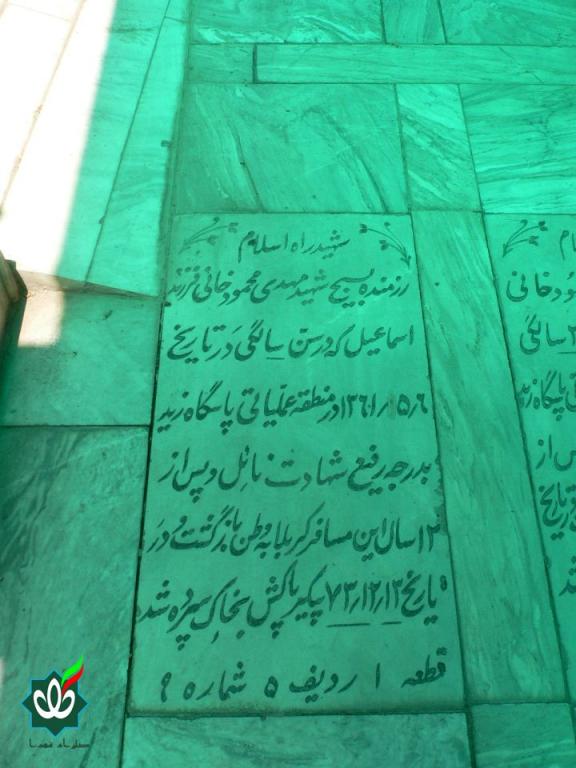 شهید راه اسلام
رزمنده بسیج شهید مهدی محمودخانی فرزند
اسماعیل که در سن سالگی در تاریخ
۱۳۶۱٫۵٫۶ در منطقه عملیاتی پاسگاه زید
بدرجه رفیع شهادت نائل و پس از
۱۲ سال این مسافر کربلا به وطن بازگشت و در
تاریخ ۷۳٫۱۲٫۱۳ پیکر پاکش بخاک سپرده شد
قطعه ۱ ردیف ۵ شماره ۹